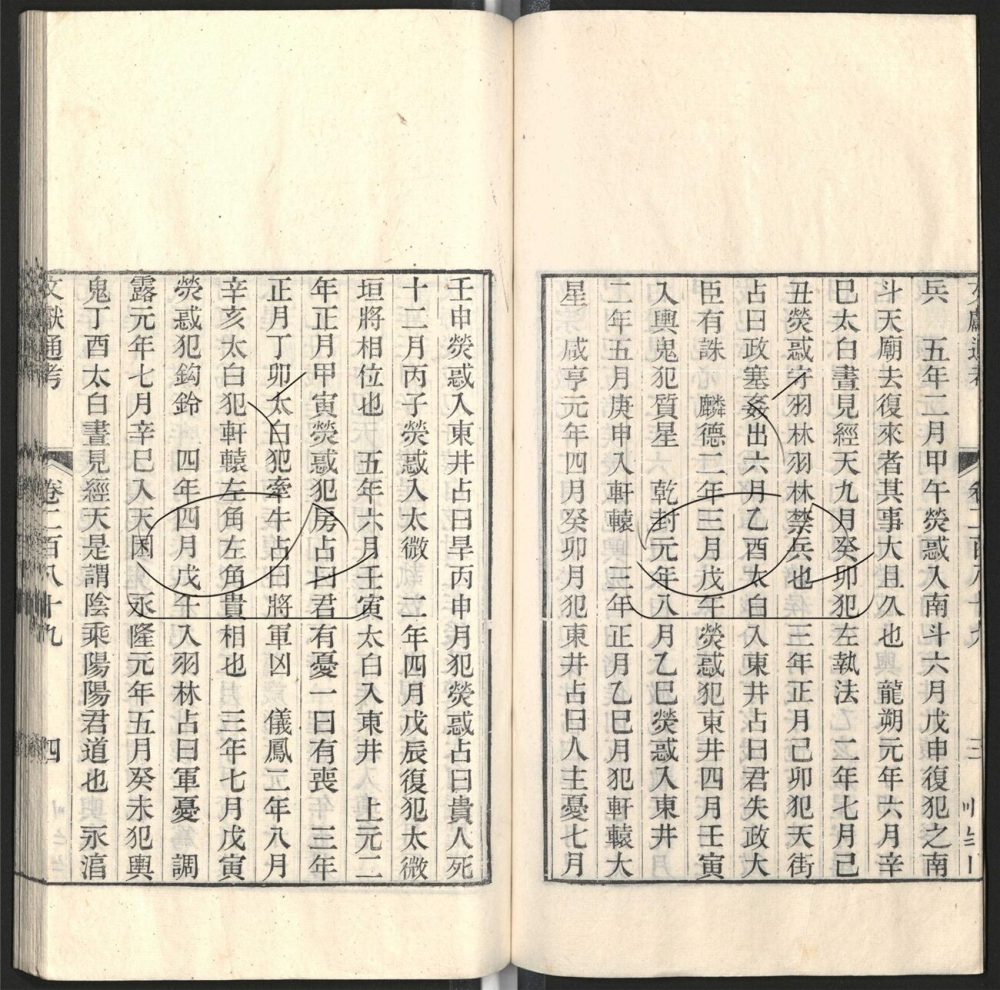 兵　五年二月甲午熒惑入南斗六月戊申復犯之南
斗天廟去復來者其事大且久也　龍朔元年六月辛
巳太白晝見經天九月癸卯犯左執法　二年七月己
丑熒惑守羽林羽林禁兵也　三年正月己卯犯天街
占曰政塞姦出六月乙酉太白入東井占曰君失政大
臣有誅　麟德二年三月戊午熒惑犯東井四月壬寅
入輿鬼犯質星　乾封元年八月乙巳熒惑入東井
二年五月庚申入軒轅　三年正月乙巳月犯軒轅大
星　咸亨元年四月癸卯月犯東井占曰人主憂七月
壬申熒惑入東井占曰旱丙申月犯熒惑占曰貴人死
十二月丙子熒惑入太微　二年四月戊辰復犯太微
垣將相位也　五年六月壬寅太白入東井　上元二
年正月甲寅熒惑犯房占曰君有憂一曰有喪　三年
正月丁卯太白犯牽牛占曰將軍凶　儀鳳二年八月
辛亥太白犯軒轅左角左角貴相也　三年七月戊寅
熒惑犯鈎鈐　四年四月戊午入羽林占曰軍憂　調
露元年七月辛巳入天囷　永隆元年五月癸未犯輿
鬼丁酉太白晝見經天是謂陰乘陽陽君道也　永淳
文獻通考　卷二百八十九　四